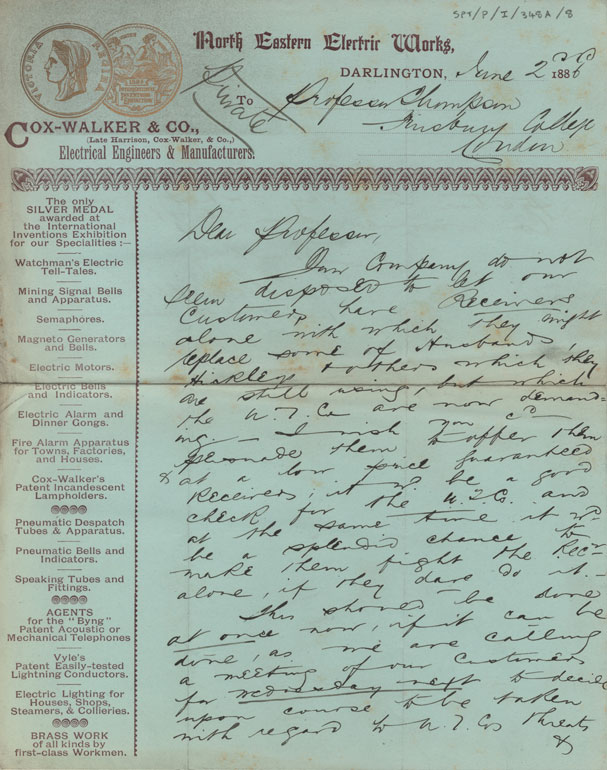 SPT/P/I/348A/8
VICTORIA REGINA
North Eastern Electric Works,
DARLINGTON, June 2nd 1886
Private
To Professor Thompson
Finsbury College
London
COX-WALKER & CO.,
(Late Harrison, Cox-Walker, & Co.,)
Electrical Engineers & Manufacturers.
The only
SILVER MEDAL
awarded at
the International
Inventions Exhibition
for our Specialities :—
Watchman's Electric
Tell-Tales.
Mining Signal Bells
and Apparatus.
Semaphores.
Magneto Generators
and Bells.
Electric Motors.
Electric Bells
and Indicators.
Electric Alarm and
Dinner Gongs.
Fire Alarm Apparatus
for Towns, Factories,
and Houses.
Cox-Walker's
Patent Incandescent
Lampholders.
Pneumatic Despatch
Tubes & Apparatus.
Pneumatic Bells and
Indicators.
Speaking Tubes and
Fittings.
AGENTS
for the "Byng"
Patent Acoustic or
Mechanical Telephones
Vyle's
Patent Easily-tested
Lightning Conductors.
Electric Lighting for
Houses, Shops,
Steamers, & Collieries.
BRASS WORK
of all kinds by
first-class Workmen.
Dear Professor,
Our Company do not
seem disposed to let our
Customers have Receivers
alone with which they might
replace some of Husbands,
Hickley & others which they
are still using, but which
the U.T.Co are now demand-
ing. — I wish you cd
persuade them to offer them
at a low price guaranteed
& Receivers, it wd be a good
check for the U.T.Co. and
at the same time it wd
be a splendid chance to
make them fight the Recr
alone, if they dare do it. —
This should be done
at once now, if it can be
done, as we are calling
a meeting of our Customers
for Wednesday next to decide
upon course to be taken
with regard to U.T.Cos threats
&